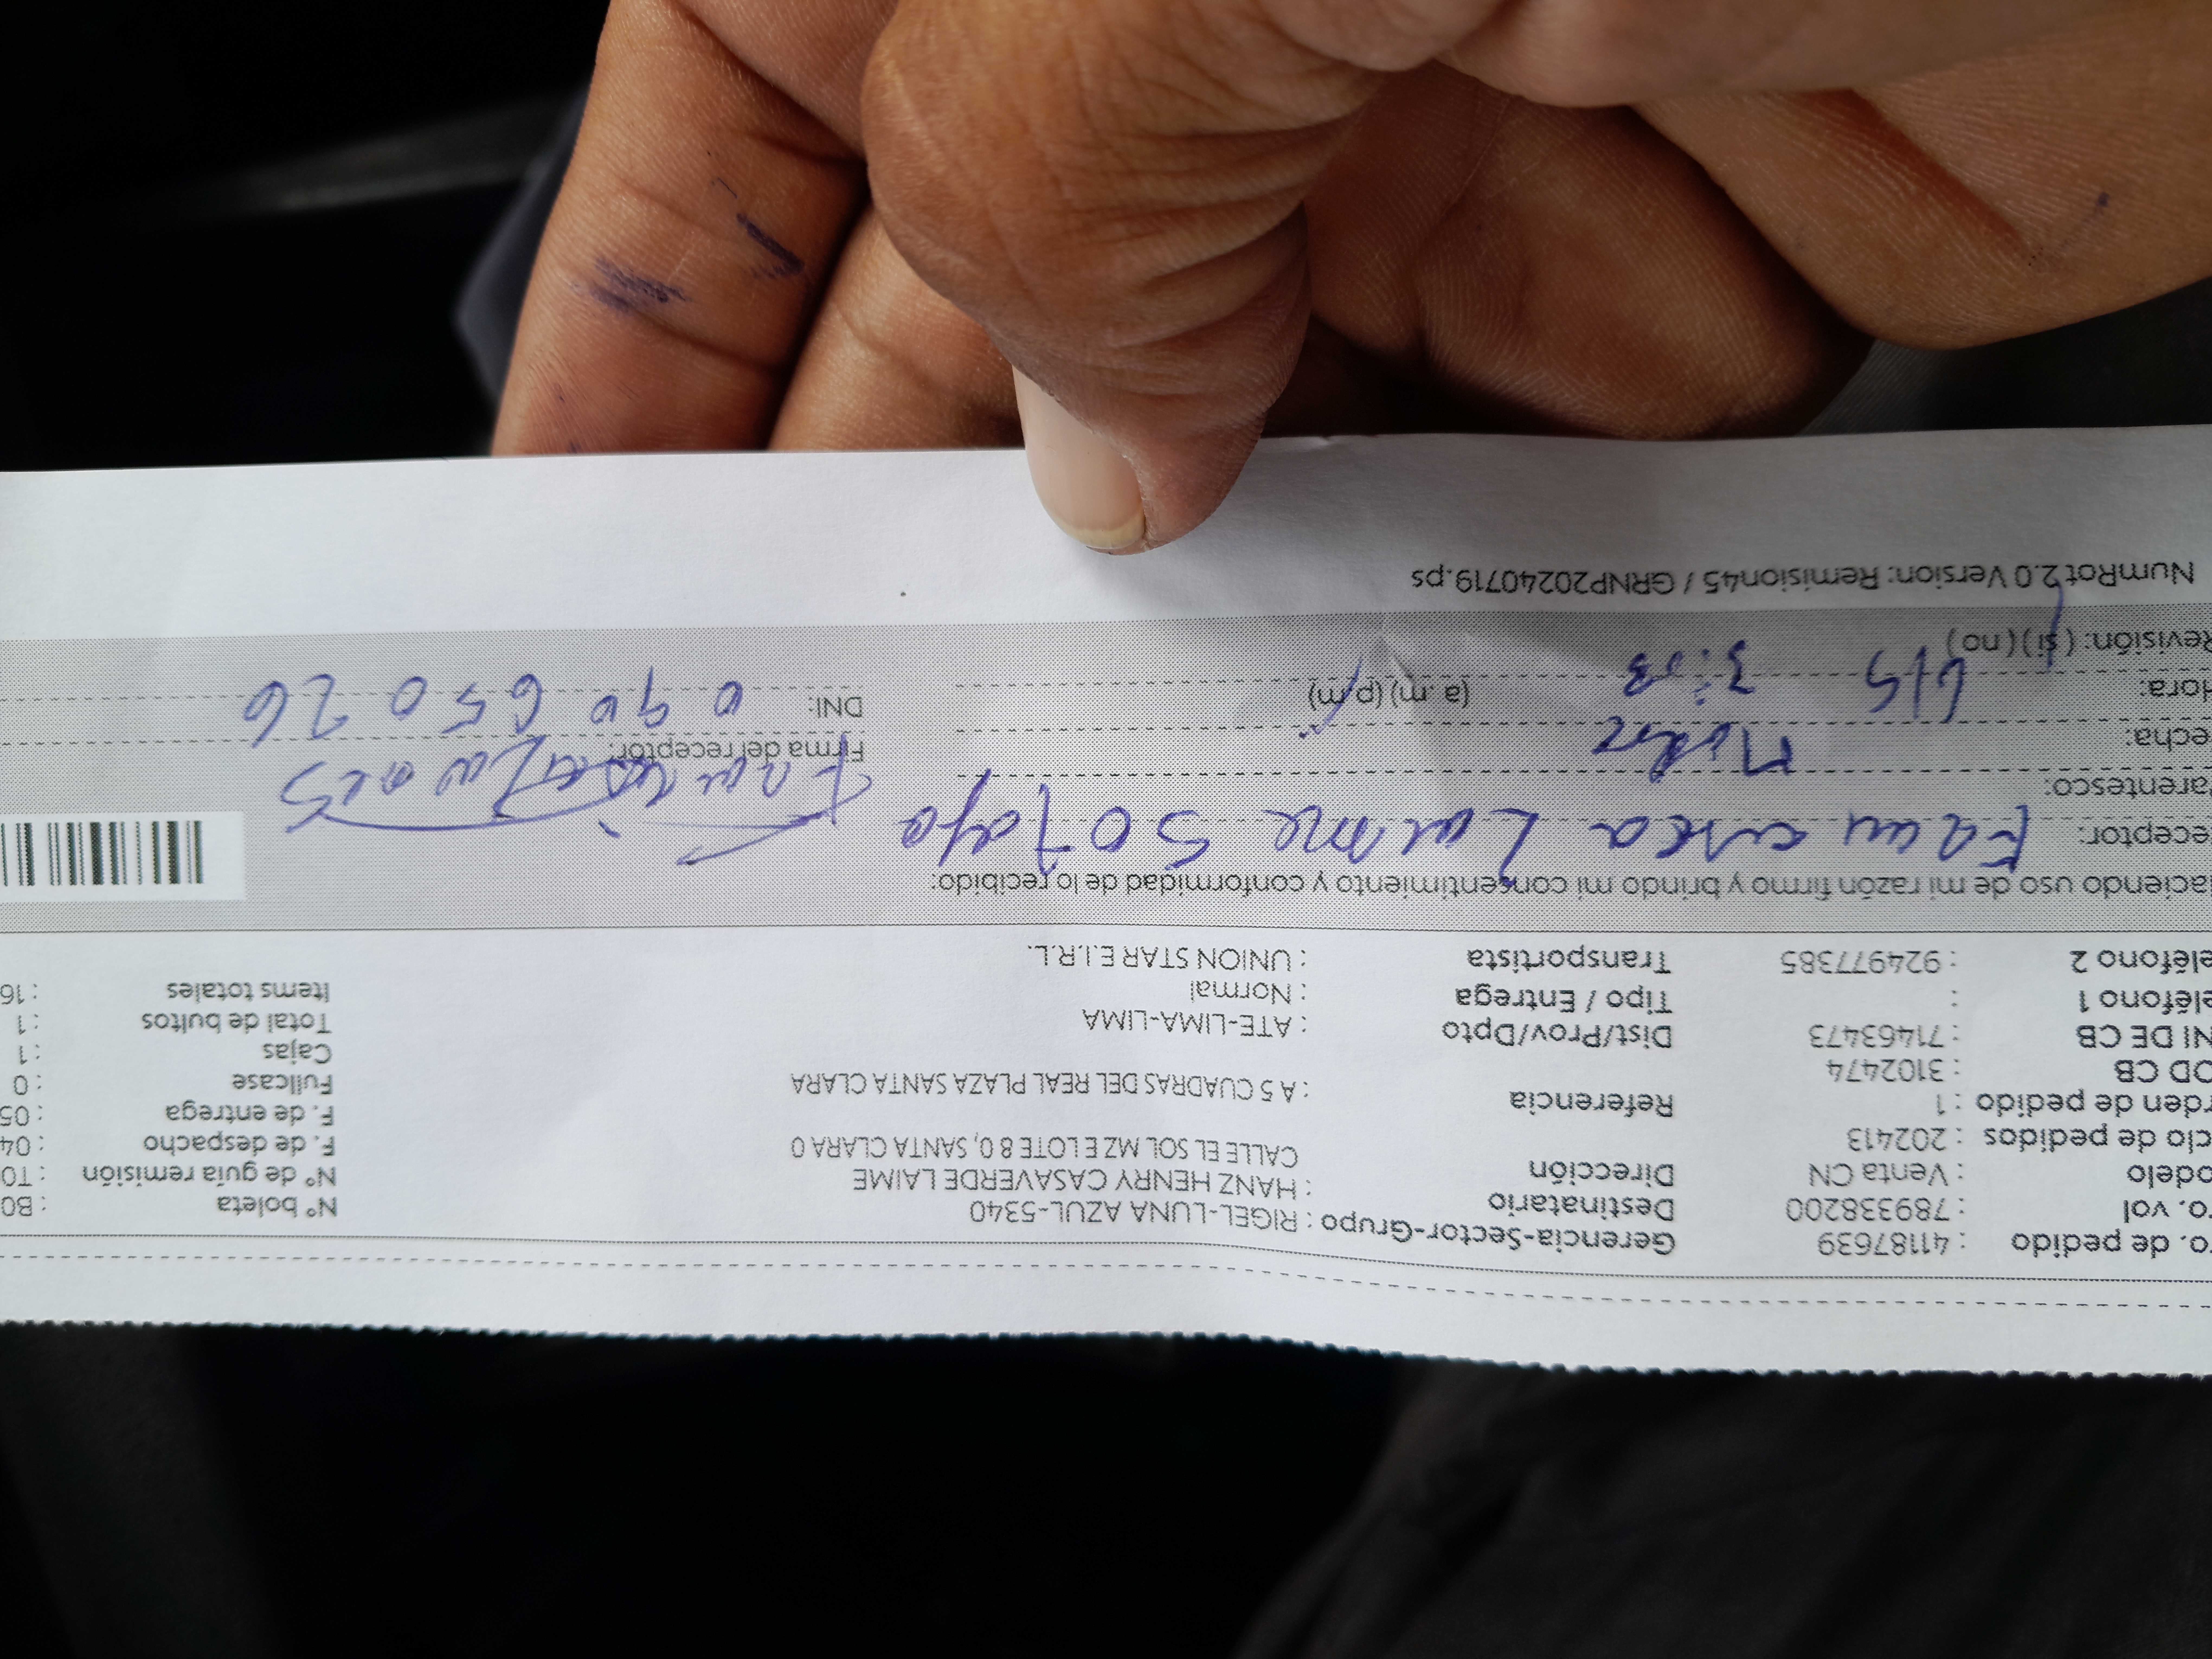 ro. de pedido : 41187639 Gerencia-Sector-Grupo : RIGEL-LUNA AZUL-5340 N° boleta : B0
ro. vol : 789338200 Destinatario : HANZ HENRY CASAVERDE LAIME N° de guía remisión : T0
odelo : Venta CN Dirección CALLE EL SOL MZ E LOTE 8 0, SANTA CLARA 0 F. de despacho : 04
clo de pedidos : 202413 F. de entrega : 05
rden de pedido : 1 Referencia : A 5 CUADRAS DEL REAL PLAZA SANTA CLARA Fullcase : 0
OD CB : 3102474 Cajas : 1
NI DE CB : 71463473 Dist/Prov/Dpto : ATE-LIMA-LIMA Total de bultos : 1
eléfono 1 : Tipo / Entrega : Normal Items totales : 16
eléfono 2 : 924977385 Transportista : UNION STAR E.I.R.L.
aciendo uso de mi razón firmo y brindo mi consentimiento y conformidad de lo recibido:
eceptor:
arentesco: Firma del receptor:
echa:
Hora: 3:03 (a. m) (p. m) DNI: 09065026
Revisión: ( si ) ( no )
NumRot 2.0 Version: Remision45 / GRNP20240719.ps